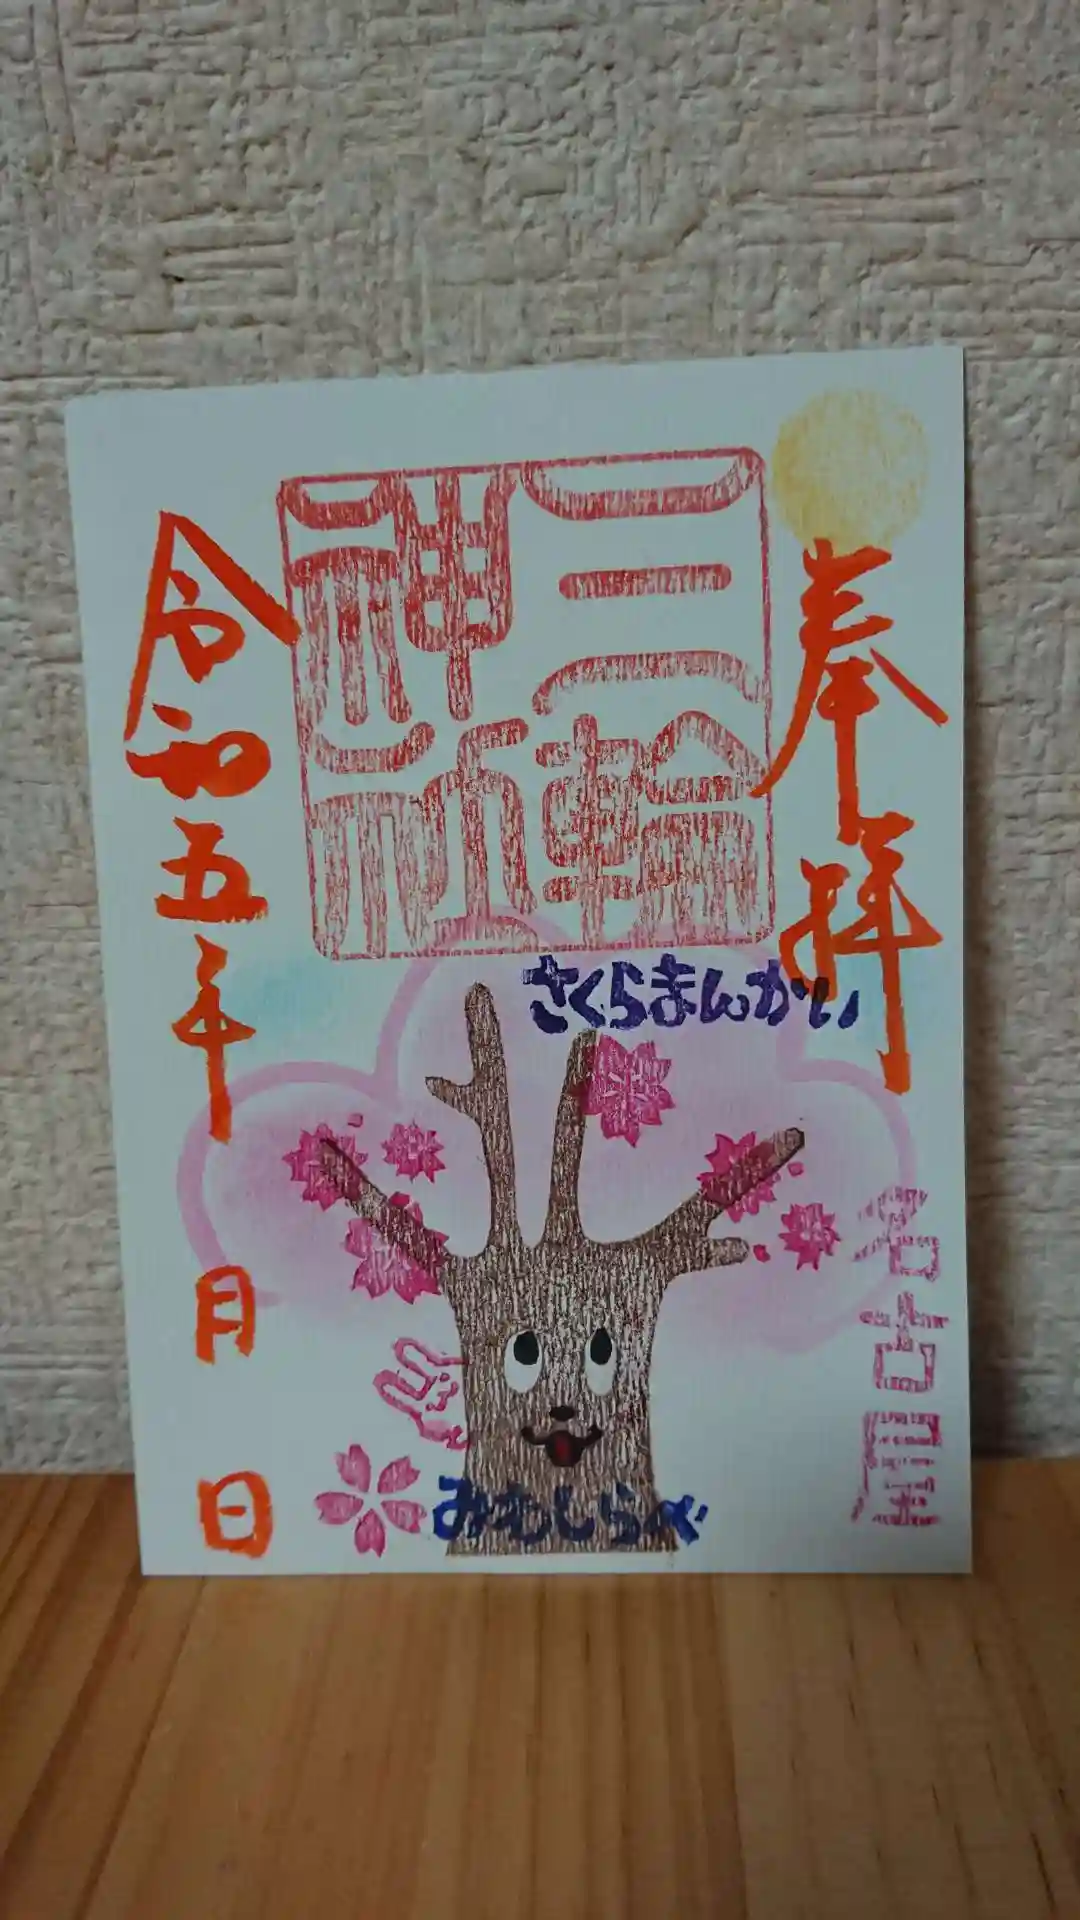 奉拝
三輪
神社
さくらまんかい
名古屋
みわしらべ
令和五年
月
日